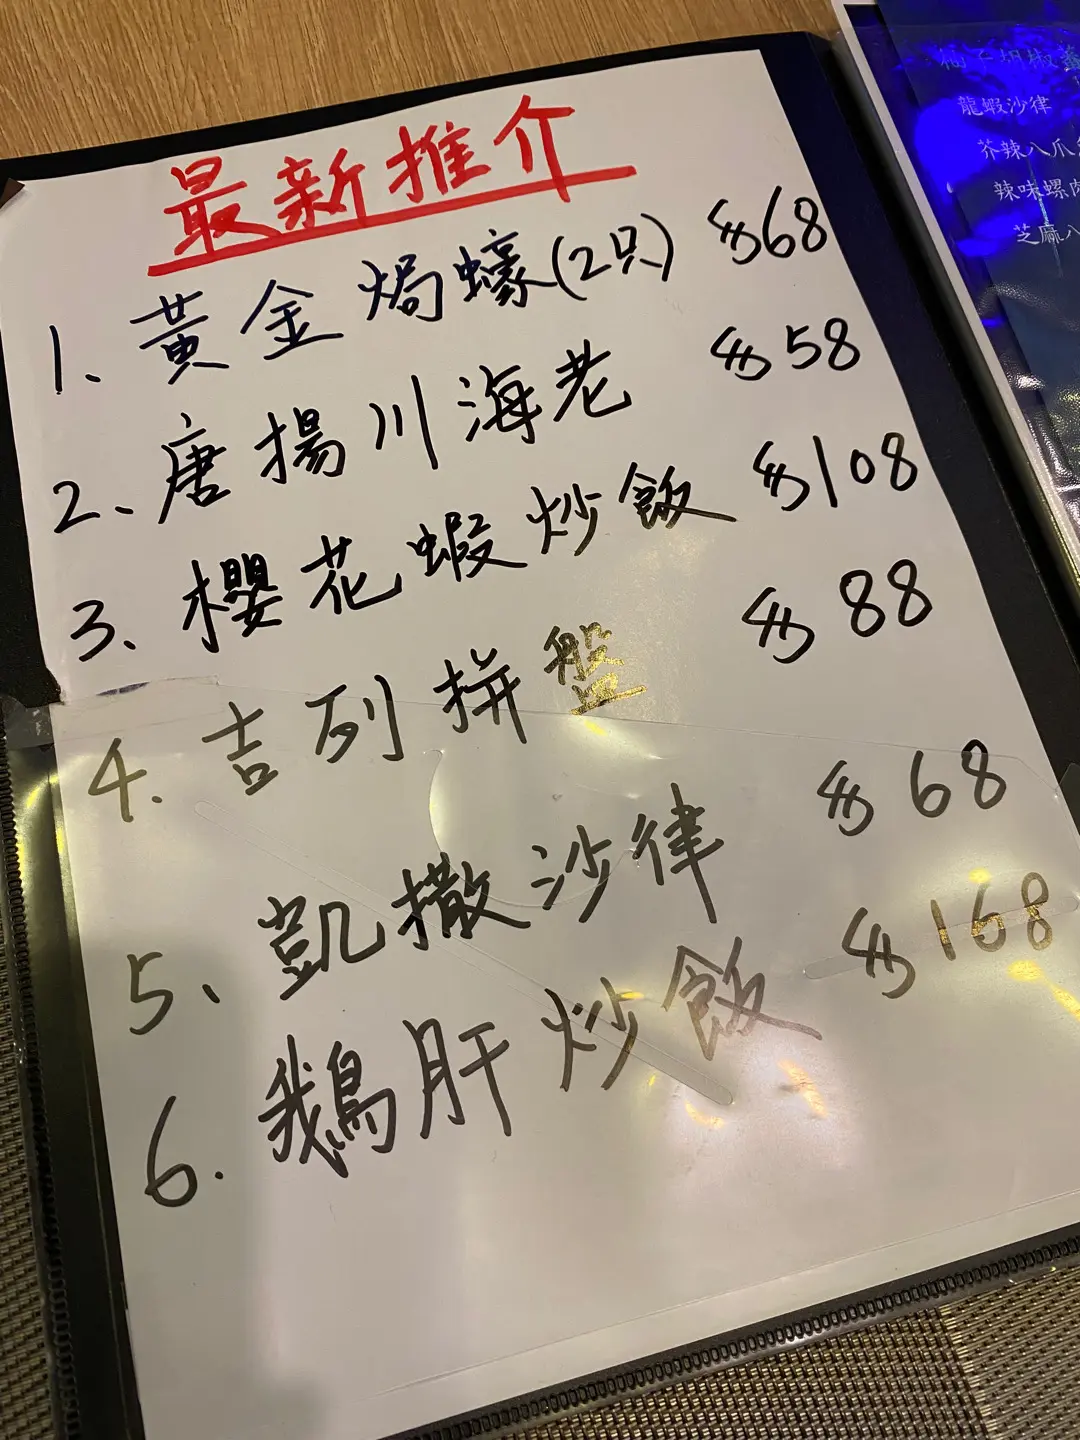 最新推介
1、黃金焗蠔(2只) $68
2、唐揚川海老 $58
3、櫻花蝦炒飯 $108
4. 吉列拼盤 $88
5、凱撒沙律 $68
6. 鵝肝炒飯 $168
龍蝦沙律
芥辣八爪
辣味螺肉
芝麻八